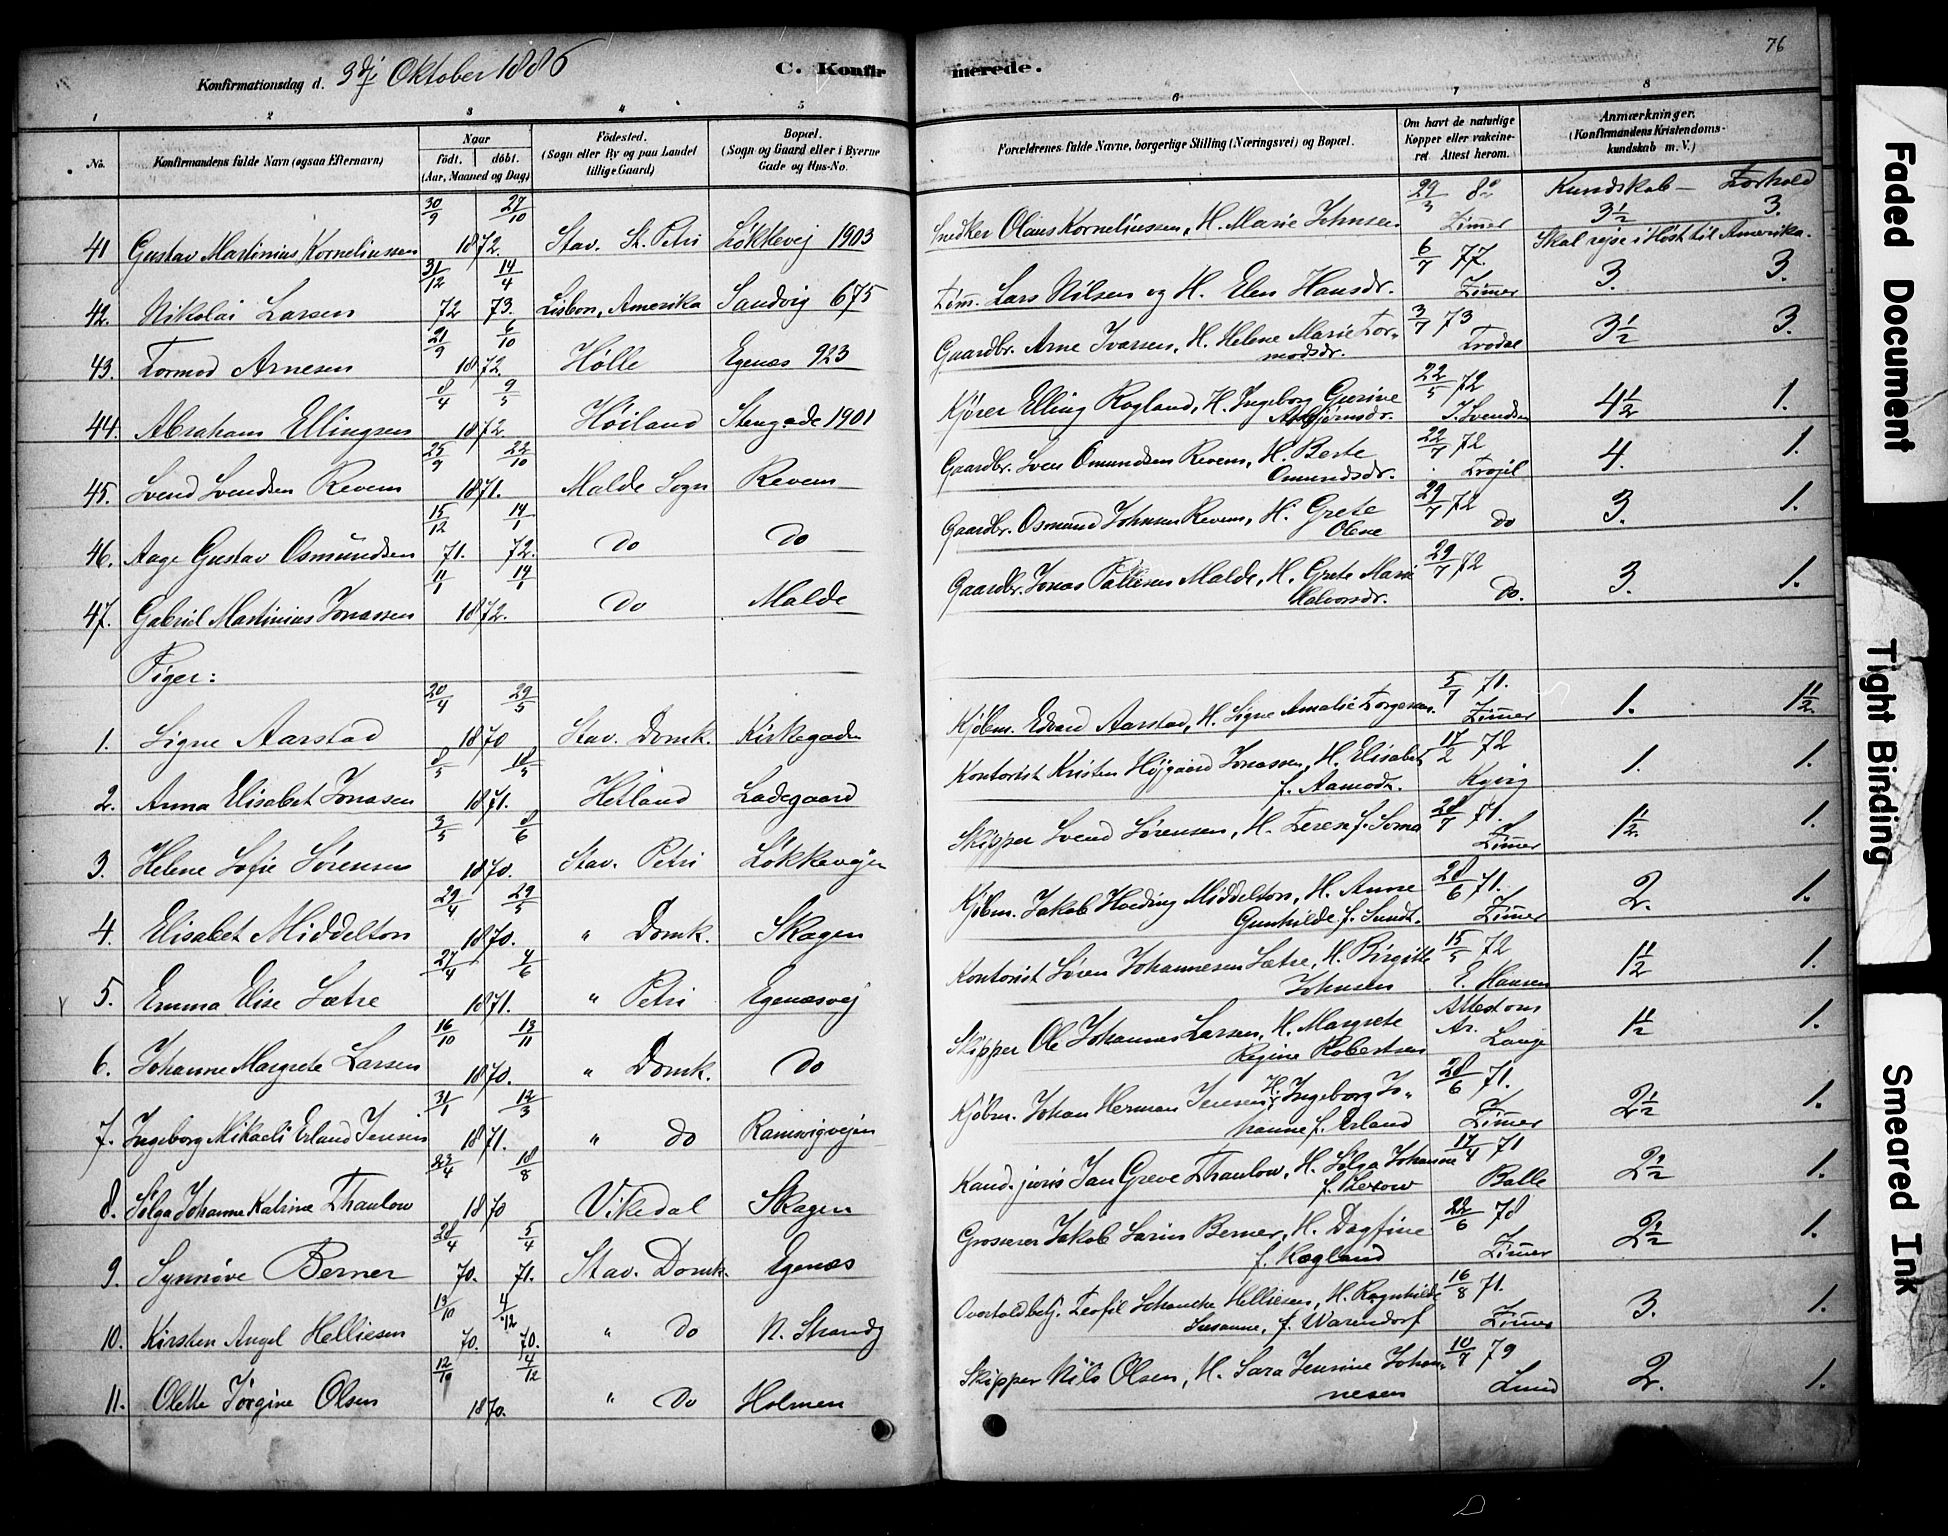 76
Konfirmationsdag d. 3dje Oktober 1886
C. Konfirmerede.
1 2 3 4 5 6 7 8
No.
Konfirmandens fulde Navn (ogsaa Efternavn)
Naar
födt. döbt.
(Aar, Maaned og Dag)
Födested.
(Sogn eller By og paa Landet
tillige Gaard)
Bopæl.
(Sogn og Gaard eller i Byerne
Gade og Hus-No.
Forældrenes fulde Navne, borgerlige Stilling (Næringsvei) og Bopæl.
Om havt de naturlige
Kopper eller vakcine-
ret Attest herom.
Anmærkninger.
(Konfirmandens Kristendoms-
kundskab m. V.)
Kundskab — Forhold
41 Gustav Martinius Korneliussen 30/9 27/10 1872. Stav. St. Petri Løkkevej 1903 Snedker Olaus Korneliussen, H. Marie Johnsen 29/3 80 Zimer 3½ 3.
Skal rejse i Høst til Amerika.
42. Nikolai Larsen 31/12 72 14/4 73. Lisbon, Amerika Sandvig 675 Tøm. Lars Nilsen og H. Elen Hansdr. 6/7 77. Zimer 3. 3.
43. Tormod Arnesen 21/9 6/10 1872. Hølle Egenæs 923 Gaardbr. Arne Ivarsen, H. Helene Marie Tor-
modsdr. 3/7 73 Trodal 3½ 3.
44. Abraham Ellingsen 8/4 9/5 1872. Høiland Stengade 1901 Kjører Elling Rogland, H. Ingeborg Gurine
Asbjørnsdr. 22/5 72 J. Svendsen 4½ 1.
45. Svend Svendsen Revem 25/9 22/10 1871. Malde Sogn Revem Gaardbr. Sven Omundsen Revem, H. Berte
Omundsdr. 22/7 72 Trojel 4. 1.
46. Aage Gustav Osmundsen 15/12 71. 14/1 72. Do Do Gaardbr. Osmund Johnsen Revem, H. Grete
Olene 29/7 72 do 3. 1.
47. Gabriel Martinius Jonassen 11/1 14/1 1872. Do Malde Gaardbr. Jonas Pallesen Malde, H. Grete Marie
Halvorsdr. 29/7 72 Do. 3. 1.
Piger:
1. Signe Aarstad 20/4 29/5 1870 Stav. Domk. Kirkegaden Kjøbm. Edvard Aarstad, H. Signe Amalie Torgersen 5/7 71. Zimer 1. 1½.
2. Anna Elisabet Jonasen 8/5 18/5 1871. Hetland Ladegaard Kontorist Kristen Højgaard Jonassen, H. Elisabet
f. Aamodt. 17/2 72 Kyvig 1. 1.
3. Helene Sofie Sörensen 3/5 8/6 1870. Stav. Petri Løkkevejen Skipper Svend Sörensen, H. Terese f. Soma 28/7 71. Zimer 1½. 1.
4. Elisabet Middelton 29/4 29/5 1870. " Domk. Skagen Kjøbm. Jakob Hveding Middelton, H. Anne
Gunhilde f. Sundt. 28/6 71. Zimer 2. 1.
5. Emma Elise Sætre 27/4 4/6 1871. " Petri Egenæsvej Kontorist Søren Johannesen Sætre, H. Birgitte
Johnsen 15/5 72 E. Hansen 1½ 1.
6. Johanne Margrete Larsen 16/10 13/11 1870. " Domk. Do Skipper Ole Johannes Larsen, H. Margrete
Regine Robertsen Attest om
Ar. Lange 1½ 1.
7. Ingeborg Mikaeli Erland Jensen 31/1 12/3 1871. " do Ramsvigvejen Kjøbm. Johan Herman Jensen, H. Ingeborg Jo-
hanne f. Erland 28/6 71. Zimer 2½ 1.
8. Sølga Johanne Katrine Thaulow 23/4 18/8 1870 Vikedal Skagen Kand. juris Jan Greve Thaulow, H. Sølga Johanne
f. Lexow 17/4 71 Balle 2½ 1.
9. Synnöve Berner 28/4 70. 5/4 71. Stav. Domk. Egenæs Grosserer Jakob Sarius Berner, H. Dagfine
f. Kogland 22/6 78 Zimer 2½ 1.
10. Kirsten Angel Helliesen 13/10 70. 4/12 70. " Do N. Strandg Overtoldbetj. Teofil Schancke Helliesen, H. Ragnhilde
Susanne, f. Warendorf 16/8 71. Zimer 3. 1.
11. Olette Jörgine Olsen 12/10 4/12 1870. " Do Holmen Skipper Nils Olsen, H. Sara Jensine Johan-
nesen 10/7 79 Lund 2. 1.
Faded Document
Tight Binding
Smeared Ink